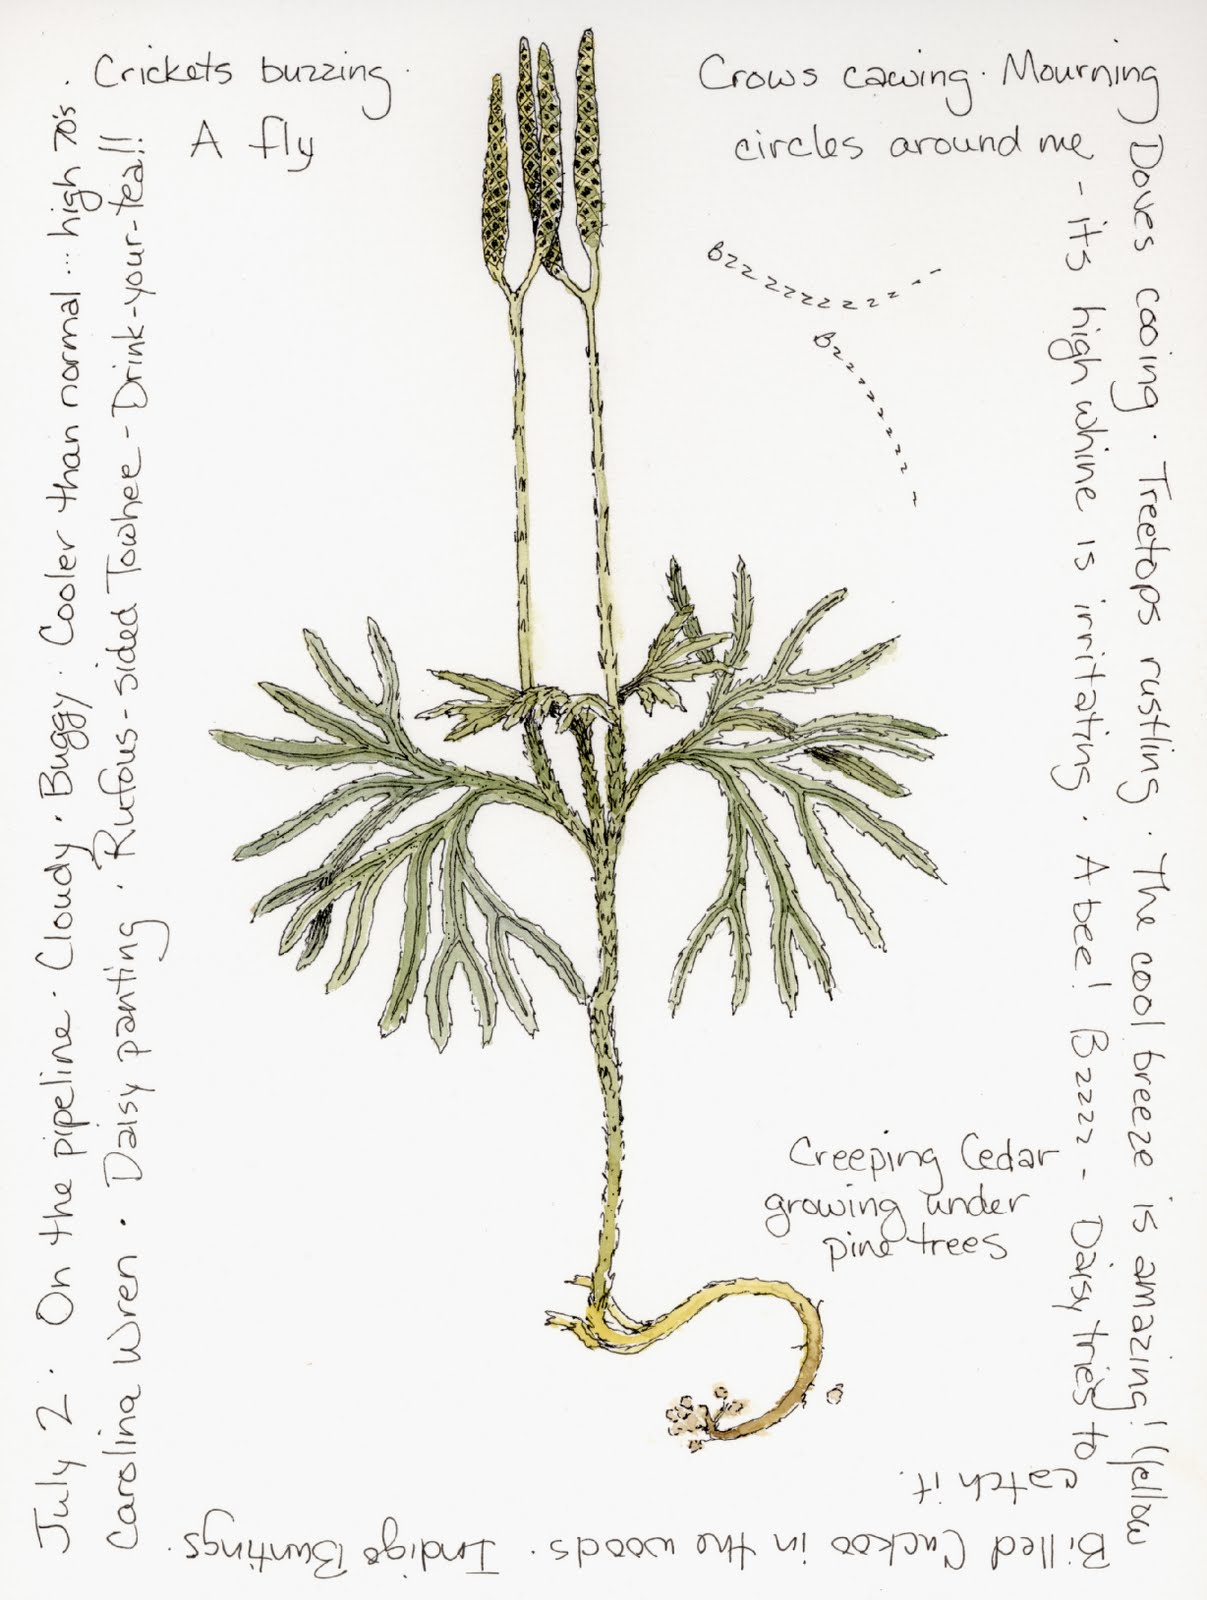 July 2. On the pipeline. Cloudy. Buggy. Cooler than normal... high 70's.
Crickets buzzing.
Crows cawing. Mourning
Doves cooing. Treetops rustling. The cool breeze is amazing! Yellow
Billed Cuckoo in the woods. Indigo Buntings.
Carolina Wren. Daisy panting. Rufous-sided Towhee - Drink-your-tea!!
A fly
circles around me
- its high whine is irritating. A bee! Bzzzz - Daisy tries to
catch it.
Bzz zzzzzzzzz
Bzzzzzzzzzz
Creeping Cedar
growing under
pine trees